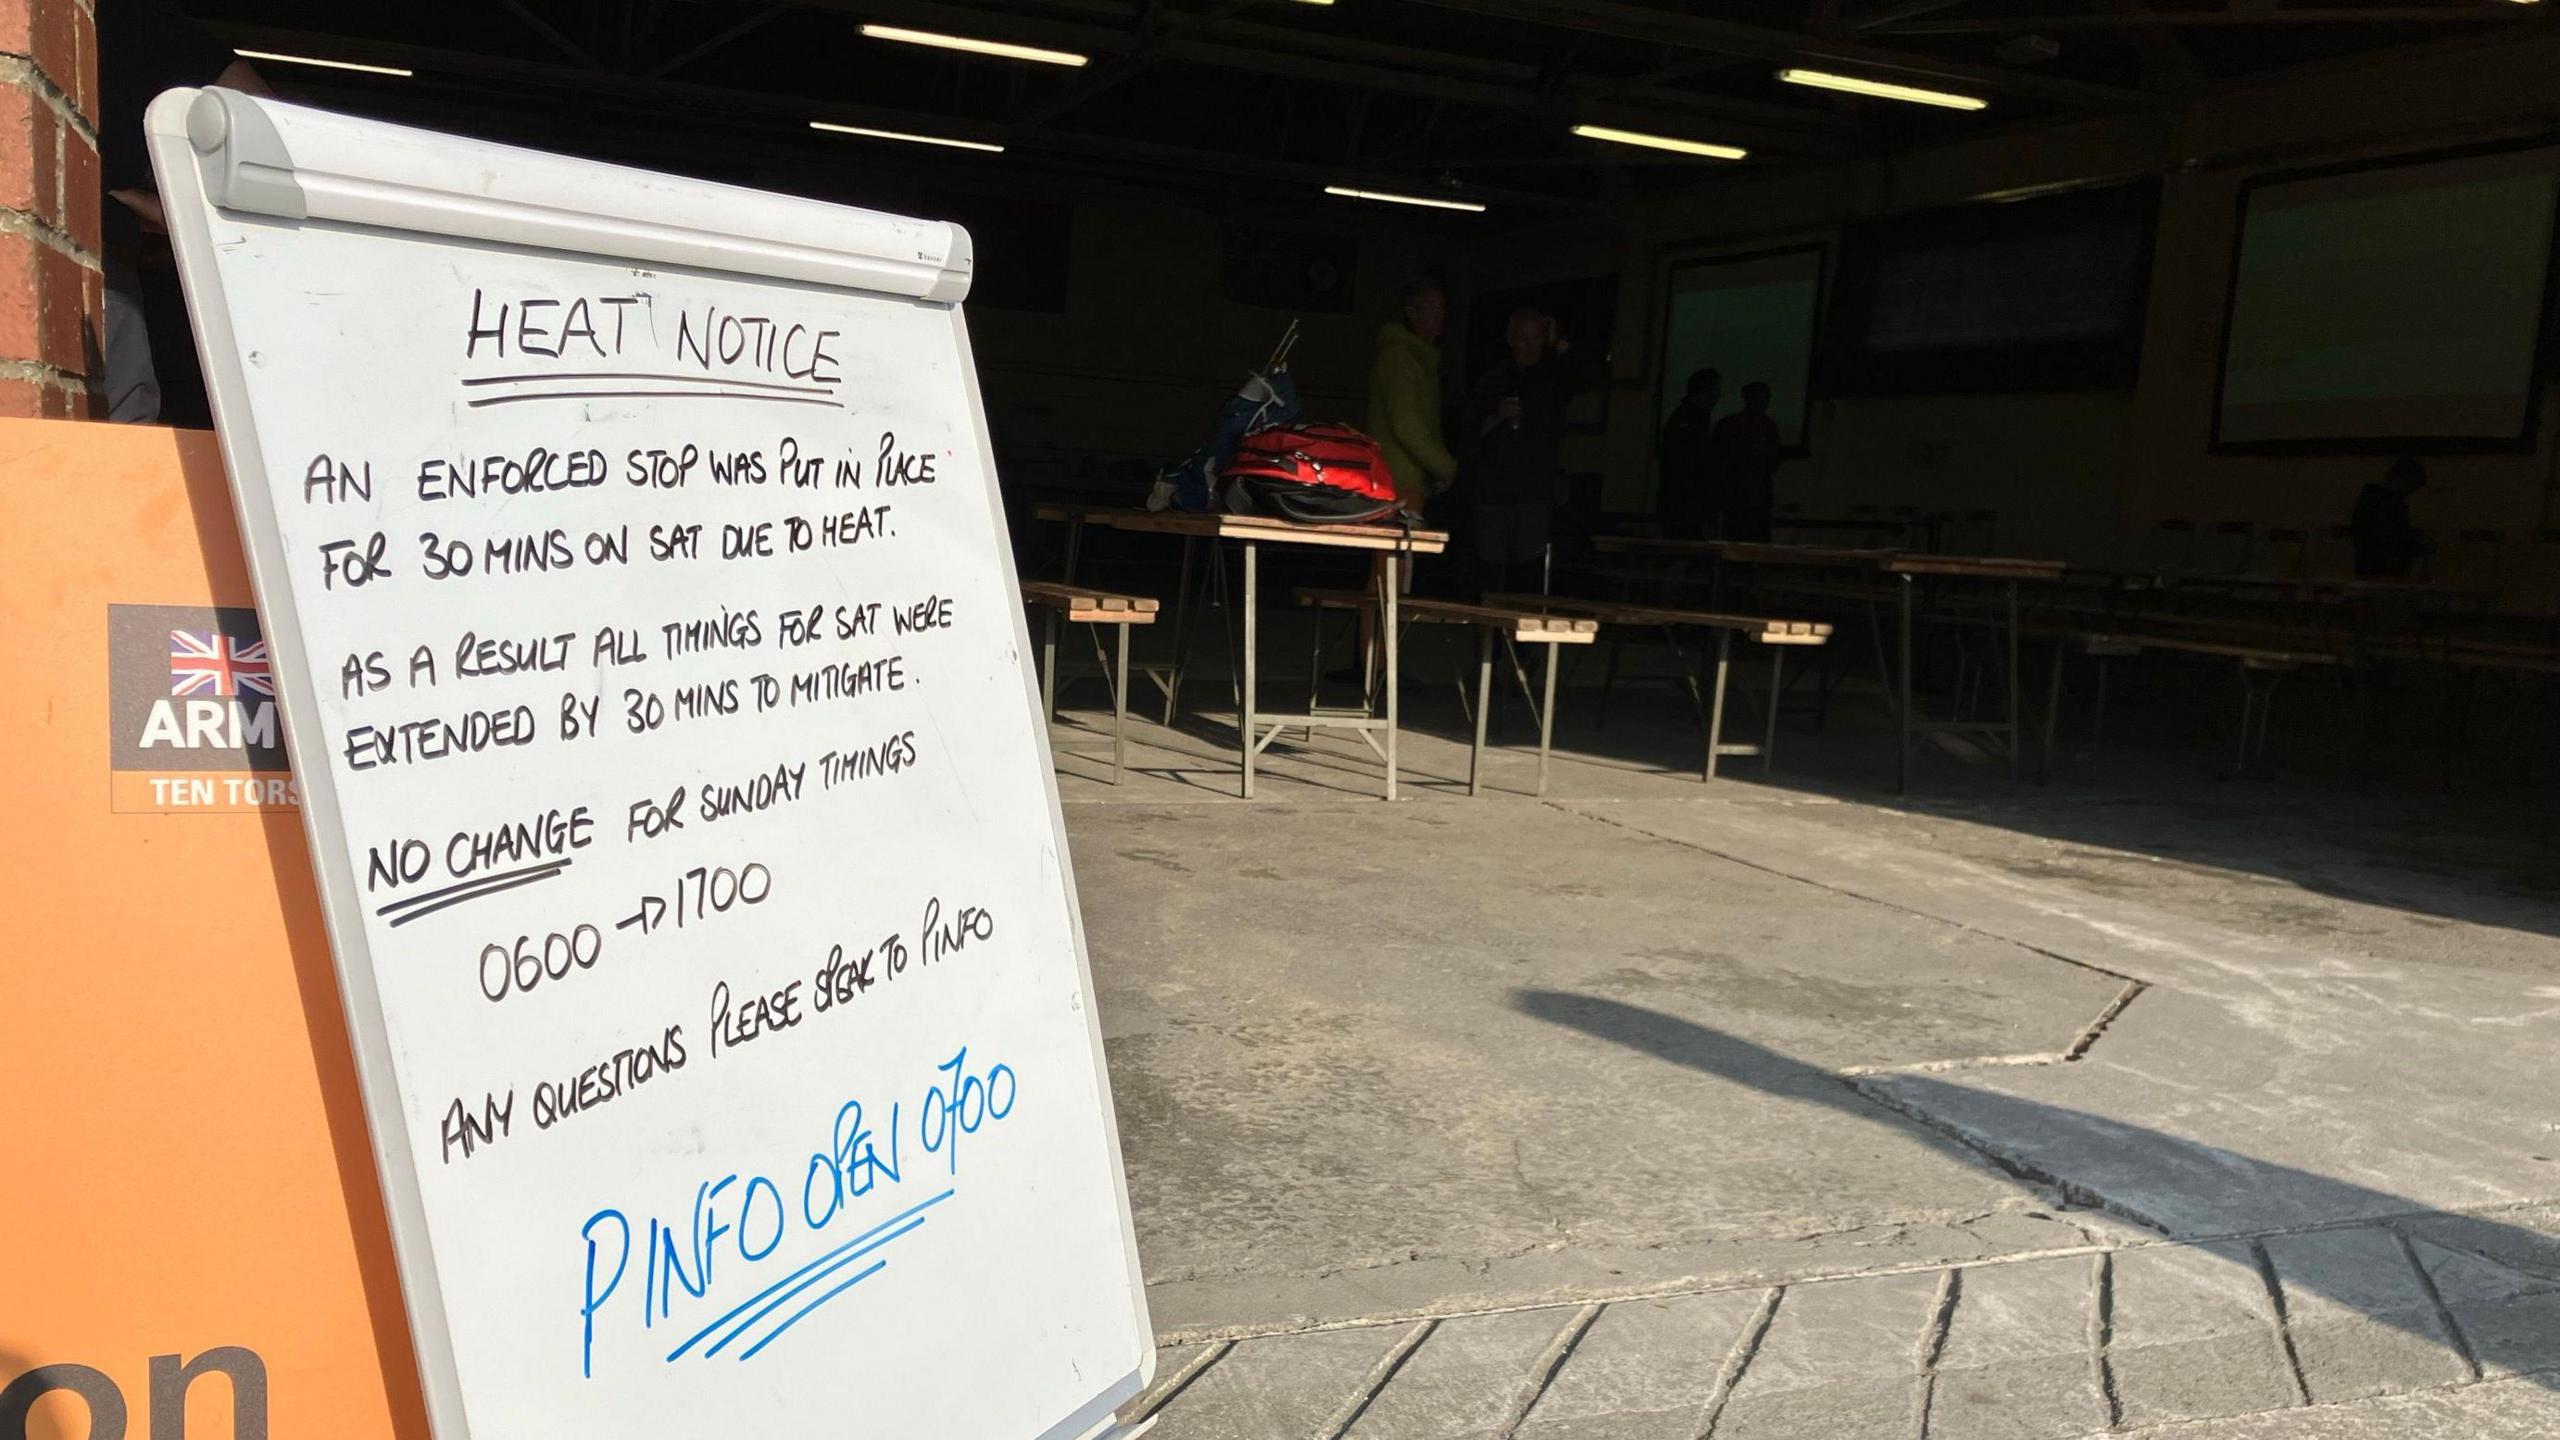 HEAT NOTICE
AN ENFORCED STOP WAS PUT IN PLACE
FOR 30 MINS ON SAT DUE TO HEAT.
AS A RESULT ALL TIMINGS FOR SAT WERE
EXTENDED BY 30 MINS TO MITIGATE.
NO CHANGE FOR SUNDAY TIMINGS
0600 → 1700
ANY QUESTIONS PLEASE SPEAK TO PINFO
PINFO OPEN 0700
ARM
TEN TORS
on